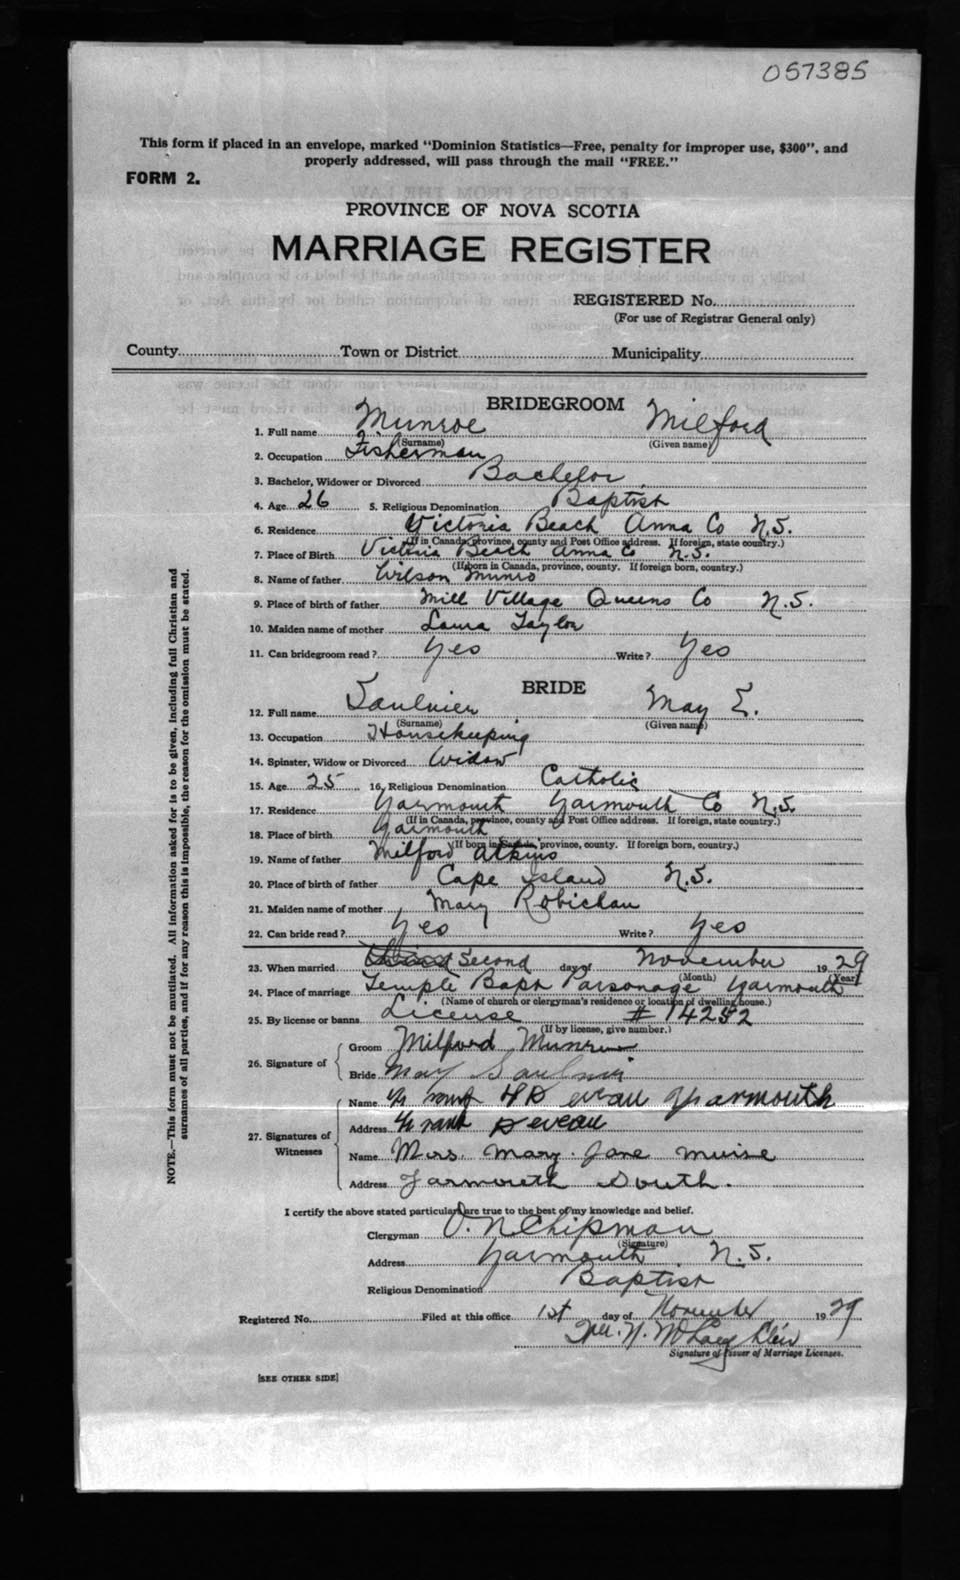 057385
This form if placed in an envelope, marked "Dominion Statistics—Free, penalty for improper use, $300", and
properly addressed, will pass through the mail "FREE."
FORM 2.
PROVINCE OF NOVA SCOTIA
MARRIAGE REGISTER
REGISTERED No.
(For use of Registrar General only)
County Town or District Municipality
BRIDEGROOM
1. Full name Munroe Milford
(Surname) (Given name)
2. Occupation Fisherman
3. Bachelor, Widower or Divorced Bachelor
4. Age 26 5. Religious Denomination Baptist
6. Residence Victoria Beach Anna Co N.S.
(If in Canada, province, county and Post Office address. If foreign, state country.)
7. Place of Birth Victoria Beach Anna Co N.S.
(If born in Canada, province, county. If foreign born, country.)
8. Name of father Wilson Munro
9. Place of birth of father Mill Village Queens Co N.S.
10. Maiden name of mother Laura Taylor
11. Can bridegroom read? Yes Write? Yes
BRIDE
12. Full name Saulnier May E.
(Surname) (Given name)
13. Occupation Housekeeping
14. Spinster, Widow or Divorced Widow
15. Age 25 16. Religious Denomination Catholic
17. Residence Yarmouth Yarmouth Co N.S.
(If in Canada, province, county and Post Office address. If foreign, state country.)
18. Place of birth Yarmouth
(If born in Canada, province, county. If foreign born, country.)
19. Name of father Milford Atkins
20. Place of birth of father Cape Island N.S.
21. Maiden name of mother Mary Robichau
22. Can bride read? Yes Write? Yes
23. When married Second day of November 1929
(Month) (Year)
24. Place of marriage Temple Bapt Parsonage Yarmouth
(Name of church or clergyman's residence or location of dwelling house.)
25. By license or banns License # 14252
(If by license, give number.)
26. Signature of
Groom Milford Munroe
Bride May Saulnier
27. Signatures of Witnesses
Name Deveau Yarmouth
Address Deveau
Name Mrs. Mary Jane Muise
Address Yarmouth South.
I certify the above stated particulars are true to the best of my knowledge and belief.
Clergyman O. N. Chipman
(Signature)
Address Yarmouth N.S.
Religious Denomination Baptist
Registered No. Filed at this office 1st day of November 1929
Signature of Issuer of Marriage Licenses.
[SEE OTHER SIDE]
NOTE.—This form must not be mutilated. All information asked for is to be given, including full Christian and
surnames of all parties, and if for any reason this is impossible, the reason for the omission must be stated.